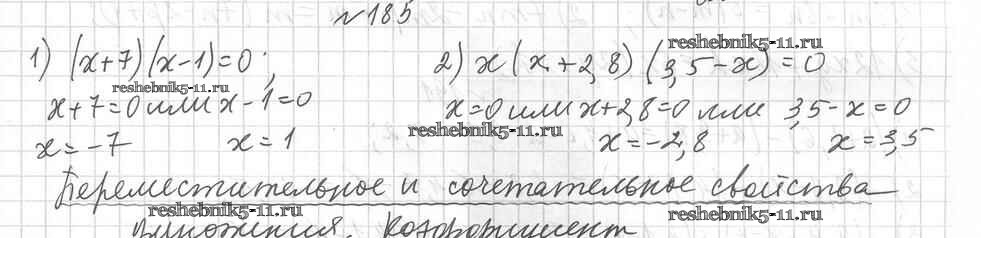 №185
1) (x+7)(x-1)=0; 2) x(x+2,8)(3,5-x)=0
reshebnik5-11.ru reshebnik5-11.ru
x+7=0 или x-1=0 x=0 или x+2,8=0 или 3,5-x=0
reshebnik5-11.ru
x=-7 x=1 x=-2,8 x=3,5
Переместительное и сочетательное свойства
reshebnik5-11.ru reshebnik5-11.ru
умножения. Коэффициент